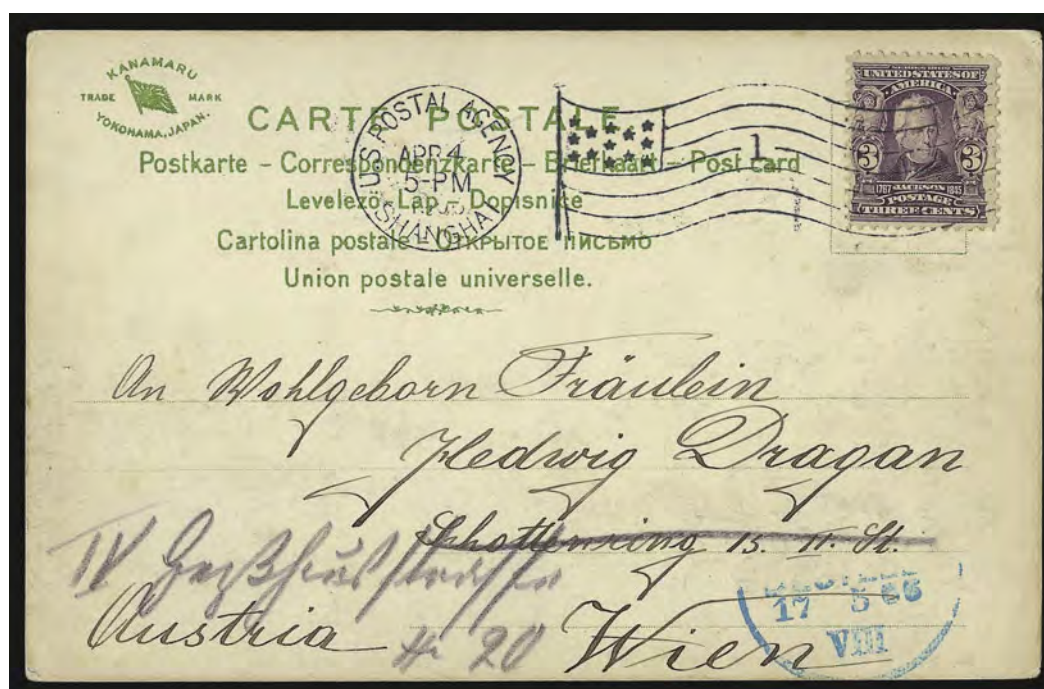 KANAMARU
TRADE MARK
YOKOHAMA, JAPAN.
CARTE POSTALE
Postkarte – Correspondenzkarte – Briefkaart – Post card
Levelező Lap – Dopisnice
Cartolina postale – Открытое письмо
Union postale universelle.
U.S. POSTAL AGENCY
APR 4
5-PM
SHANGHAI
1
UNITED STATES OF
AMERICA
3 3
1767 JACKSON 1845
POSTAGE
THREE CENTS
An Wohlgeborn Fräulein
Hedwig Dragan
Schottenring 15. II. St.
IV
# 20
Austria
Wien
17 5
VIII